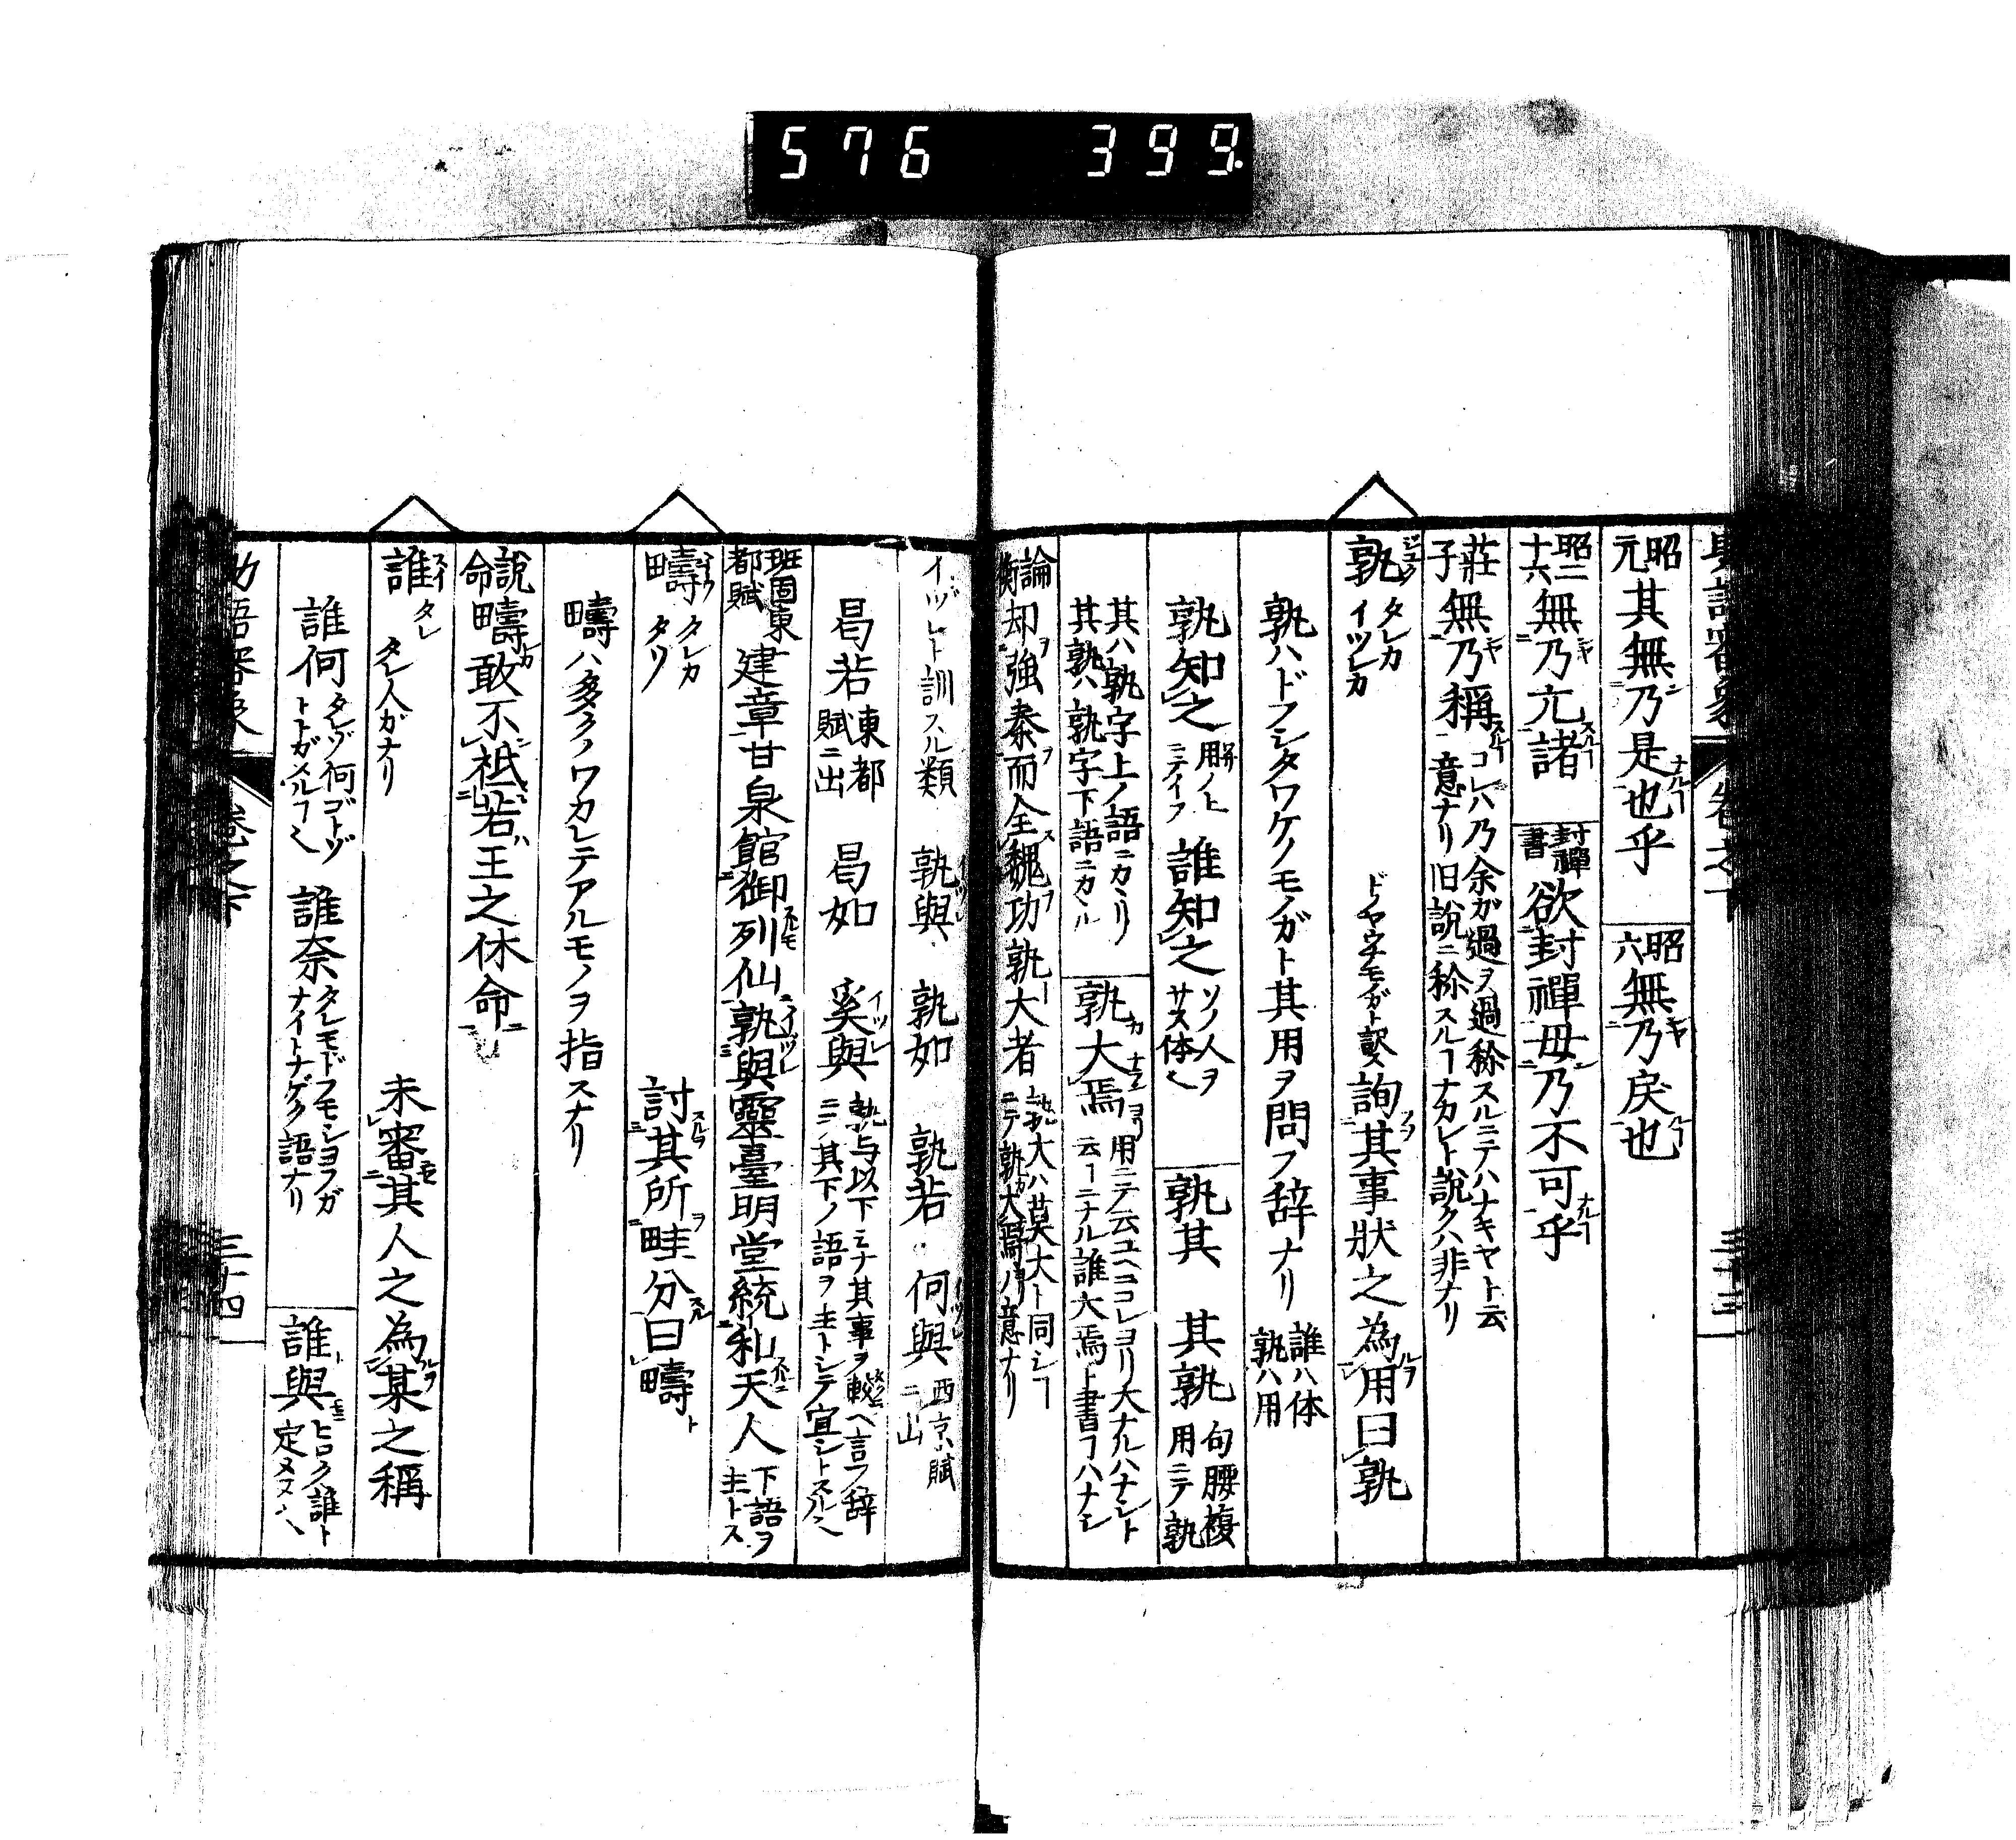 576 399.
昭元 其無乃是也乎 昭六 無乃戾也
昭二十六 無乃亢諸 封禪書 欲封禪毋乃不可乎
莊子 無乃稱 コレハ乃余ガ過ヲ過称スルニテハナキヤト云意ナリ旧説ニ称スルヿナカレト説クハ非ナリ
孰 ジユク タレカ イツレカ ドノヤウナモノガト訳ス 詢其事狀之為用曰孰
孰ハドフシタワケノモノガト其用ヲ問フ辞ナリ 誰ハ体 孰ハ用
孰知之 用ノ上ニテイフ 誰知之 ソノ人ヲサス体 孰其 其孰 句腰複用ニテ孰
其ハ孰字上ノ語ニカヽリ其孰ハ孰字下語ニカヽル 孰大焉 用ニテ云ユヘココレヨリ大ナルハナシト云ヿニナル誰大焉ト書フハナシ
論衡 却強秦而全魏功孰大者 孰大ハ莫大ト同シヿニテ孰大焉ノ意ナリ
イヅレト訓スル類 孰與 孰如 孰若 何與 西京賦ニ出
曷若 東都賦ニ出 曷如 奚與 イツレ 孰与以下ミナ其事ヲ較ヘ言フ辞ニシテ其下ノ語ヲ主トシテ宜シトスル
班固東都賦 建章甘泉館御列仙孰與靈臺明堂統和天人 下語ヲ主トス
疇 タレカ タソ 討其所畦分曰疇
疇ハ多クノワカレテアルモノヲ指スナリ
說命 疇敢不祗若王之休命
誰 スイ タレ タレ人ガナリ 未審其人之為某之稱
誰何 タレゾ何ゴトゾトトガメルヿ 誰奈 タレモドフモシヨフガナイトナゲク語ナリ 誰與 ヒロク誰ト定メヌ
三十四